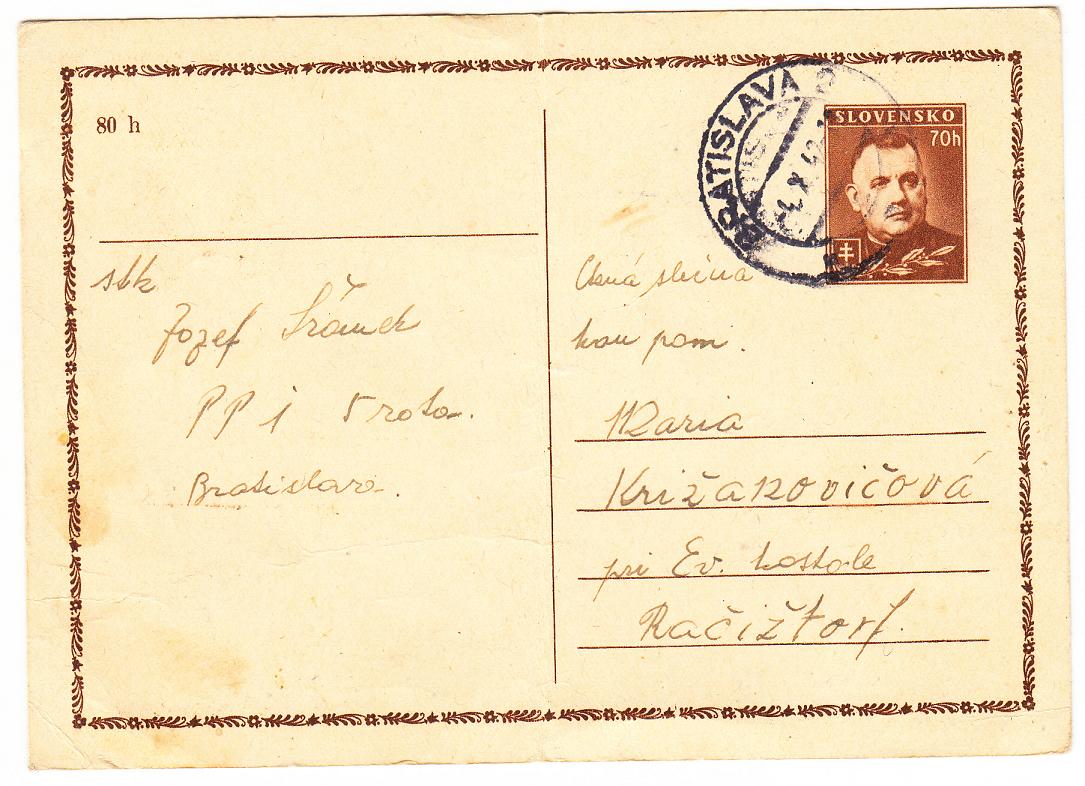 80 h
BRATISLAVA 2
SLOVENSKO
70h
stk
Jozef Šrámek
PP 1 5 rota.
Bratislava.
Ctená slečna
Maria
Križanovičová
pri Ev. kostole
Račištorf.